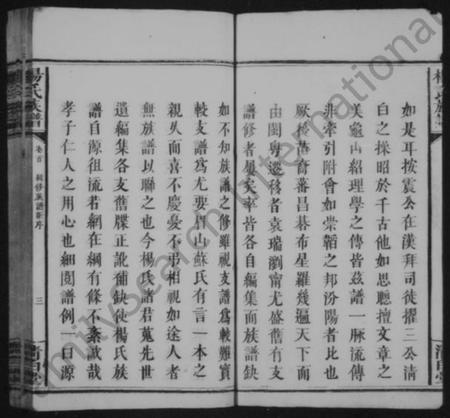 如是耳按震公在漢拜司徒擢三公清
白之操昭於千古他如思聰擅文章之
美龜山紹理學之傳皆茲譜一脈流傳
非牽引附會如崇韜之邦汾陽者比也
厥後苗裔蕃昌碁布星羅幾遍天下而
由閩粵遷移者袁瑞瀏甯尤盛舊有支
譜修者屢矣率皆各自編集而族譜缺
如不知族譜之修雖視支譜為較難實
較支譜為尤要眉山蘇氏有言一本之
親乂面喜不慶憂不弔相視如途人者
無族譜以聯之也今楊氏諸君蒐先世
遺編集各支舊牒正訛補缺使楊氏族
譜自源徂流若網在綱有條不紊誠哉
孝子仁人之用心也細閱譜例一曰源
楊氏族譜
卷首
三
清白堂